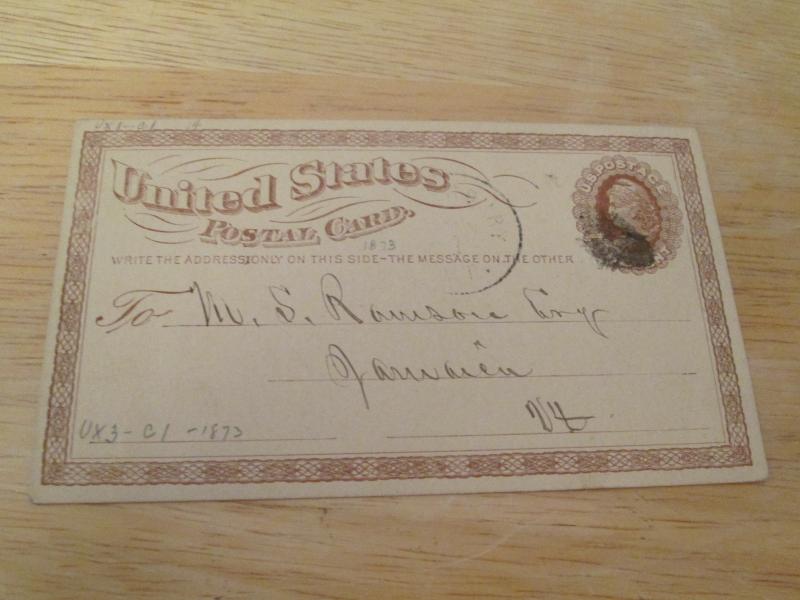 UX1-C1 A
United States
U.S. POSTAGE
POSTAL CARD.
1873
WRITE THE ADDRESS ONLY ON THIS SIDE-THE MESSAGE ON THE OTHER
To M. S. Rawson Esq
Jamaica
Vt.
UX3-C1-1873